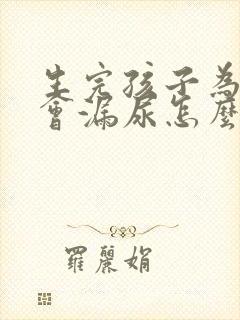 生完孩子為
會漏尿怎麼
羅麗娟